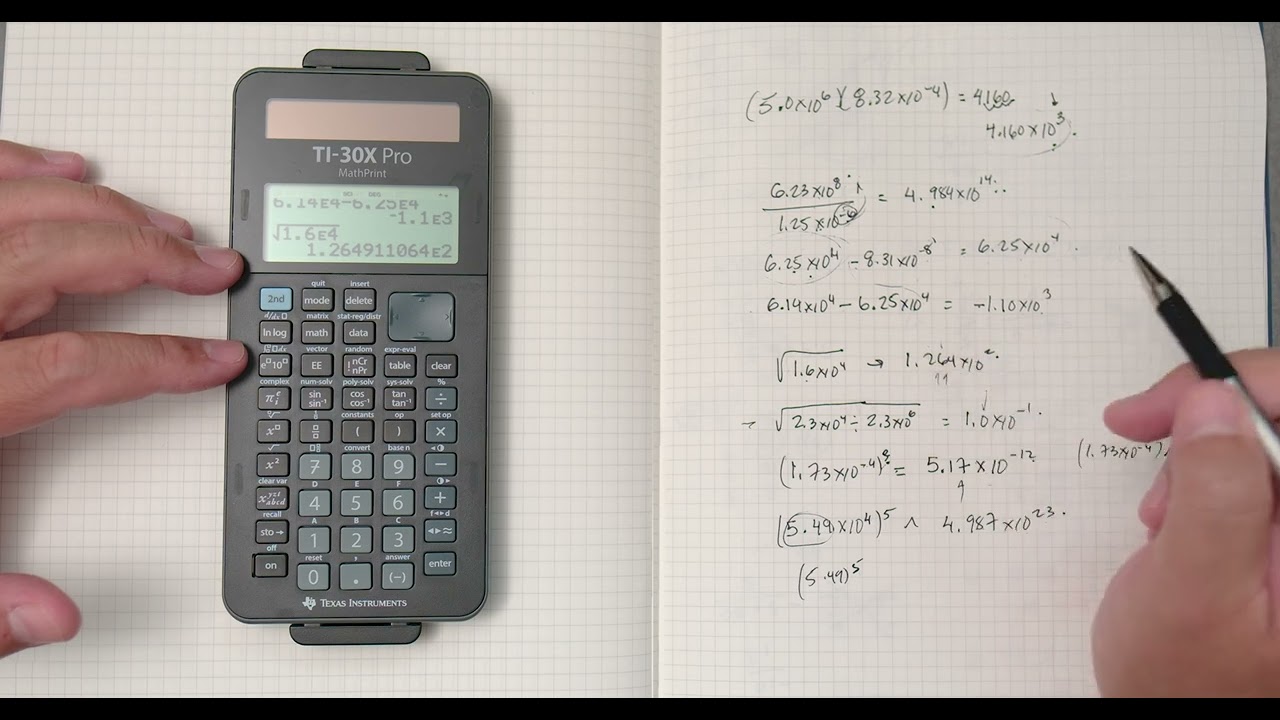 TI-30X Pro
MathPrint
SCI DEG
6.14E4-6.25E4
-1.1E3
√1.6E4
1.264911064E2
quit insert
2nd mode delete
d/dx matrix stat-reg/distr
ln log math data
vector random expr-eval
e▫10▫ EE !nCr nPr table clear
complex num-solv poly-solv sys-solv %
π e i sin sin⁻¹ cos cos⁻¹ tan tan⁻¹ ÷
constants op set op
x▫ ( ) ×
√ convert base n
x² 7 8 9 −
clear var D E F
x yzt abcd 4 5 6 +
recall A B C f◂▸d
sto→ 1 2 3 ◂▸≈
off reset , answer
on 0 . (−) enter
TEXAS INSTRUMENTS
(5.0×10⁶)(8.32×10⁻⁴) = 4160
4.160×10³.
6.23×10⁸ / 1.25×10⁻⁶ = 4.984×10¹⁴
6.25×10⁴ − 8.31×10⁻⁸ = 6.25×10⁴
6.14×10⁴ − 6.25×10⁴ = −1.10×10³
√1.6×10⁴ → 1.264×10².
√2.3×10⁴ ÷ 2.3×10⁶ = 1.0×10⁻¹.
(1.73×10⁻⁴) = 5.17×10⁻¹² (1.73×10⁻⁴)
(5.49×10⁴)⁵ ^ 4.987×10²³.
(5.49)⁵